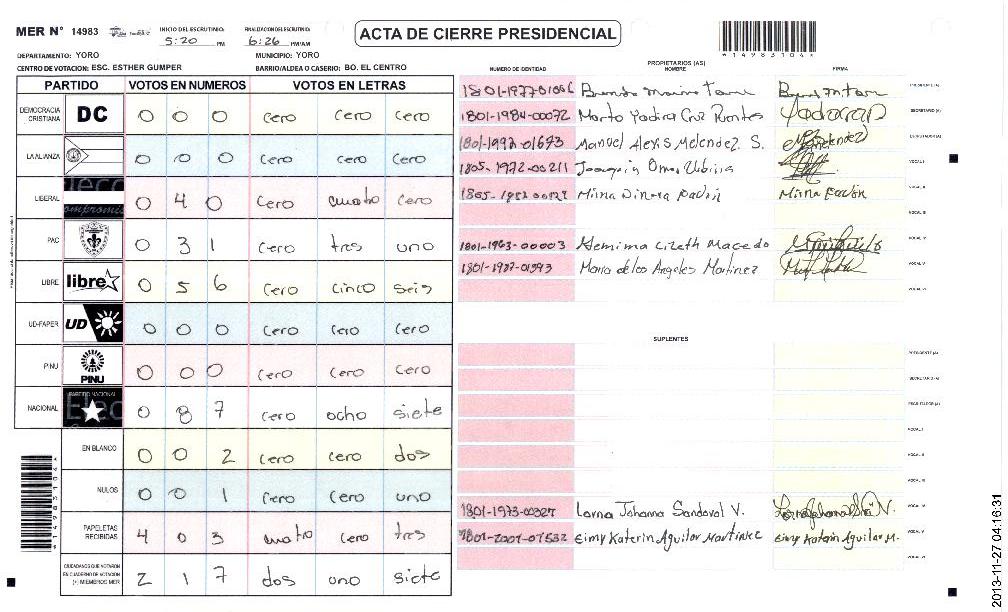 MER N° 14983
INICIO DEL ESCRUTINIO: 5:20 PM
FINALIZACION DEL ESCRUTINIO: 6:26 PM/AM
ACTA DE CIERRE PRESIDENCIAL
*14983104*
DEPARTAMENTO: YORO
MUNICIPIO: YORO
CENTRO DE VOTACION: ESC. ESTHER GUMPER
BARRIO/ALDEA O CASERIO: BO. EL CENTRO
PARTIDO VOTOS EN NUMEROS VOTOS EN LETRAS
DEMOCRACIA CRISTIANA DC 0 0 0 Cero Cero Cero
LA ALIANZA 0 0 0 Cero Cero Cero
LIBERAL 0 4 0 Cero cuatro Cero
PAC 0 3 1 Cero tres uno
LIBRE libre 0 5 6 Cero cinco seis
UD-FAPER UD 0 0 0 Cero Cero Cero
PINU PINU 0 0 0 Cero Cero Cero
NACIONAL PARTIDO NACIONAL 0 8 7 cero ocho siete
EN BLANCO 0 0 2 Cero cero dos
NULOS 0 0 1 Cero Cero uno
PAPELETAS RECIBIDAS 4 0 3 cuatro Cero tres
CIUDADANOS QUE VOTARON EN CUADERNO DE VOTACION (+) MIEMBROS MER 2 1 7 dos uno siete
PROPIETARIOS (AS)
NUMERO DE IDENTIDAD NOMBRE FIRMA
PRESIDENTE (A)
1801-1984-00072 Marta Yadira Cruz Puentes SECRETARIO (A)
Manuel Alexis Melendez. S. ESCRUTADOR (A)
1805-1972-00211 Joaquin Omar Urbina VOCAL I
Mirna VOCAL II
VOCAL III
1801-1963-00003 Hemima Lizeth Macedo VOCAL IV
1801-1987-01393 Maria de los Angeles Martinez VOCAL V
VOCAL VI
SUPLENTES
PRESIDENTE (A)
SECRETARIO (A)
ESCRUTADOR (A)
VOCAL I
VOCAL II
VOCAL III
1801-1973-00327 Lorna Johanna Sandoval V. VOCAL IV
1801-2001-01532 Eimy Katerin Aguilar Martinez Eimy Katerin Aguilar M. VOCAL V
VOCAL VI
*14983104*
2013-11-27 04:16:31